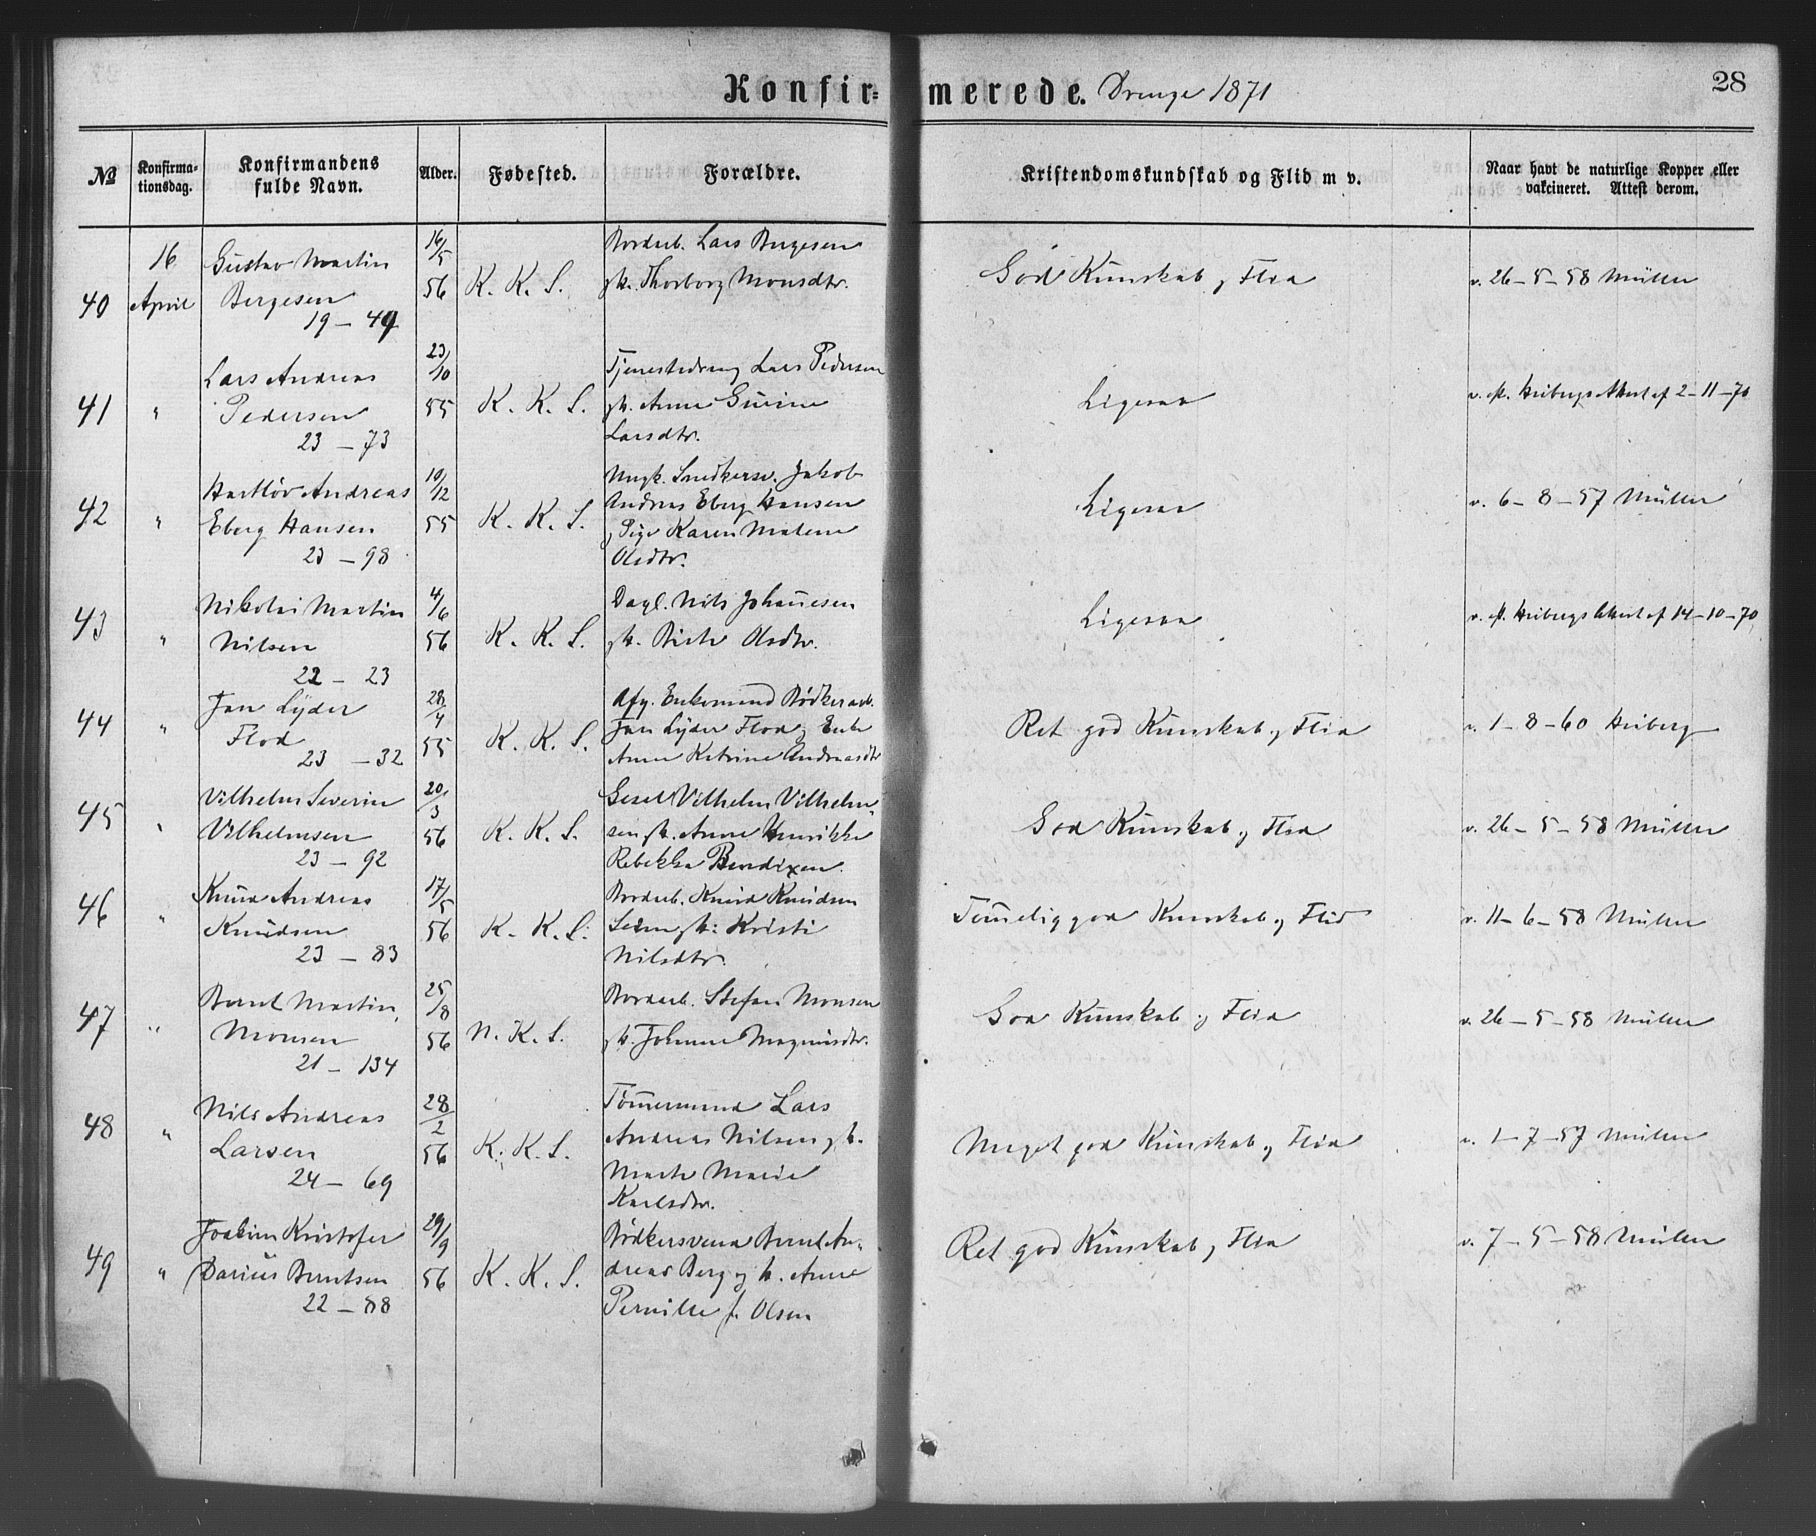 Konfirmerede. Drenge 1871
28
№
Konfirmationsdag.
Konfirmandens fulde Navn.
Alder.
Fødested.
Forældre.
Kristendomskundskab og Flid m v.
Naar havt de naturlige Kopper eller vakcineret. Attest derom.
40
16 April
Gustav Martin
Bergesen
19 – 49
16/5 56
K. K. S.
Bordarb. Lars Bergesen
h. Thorborg Monsdtr.
God Kunskab og Flid
v. 26–5–58 Müller
41
"
Lars Andreas
Pedersen
23 – 73
23/10 55
K. K. S.
Tjenestedreng Lars Pedersen
h. Anne Gurine
Larsdtr.
Ligesaa
v. eft. Heibergs Attest af 2–11–70
42
"
Hartløv Andreas
Eberg Hansen
23 – 98
10/12 55
K. K. S.
Ungk. Snedkersv. Jakob
Andreas Eberg Hansen
og Pige Karen Malene
Olsdtr.
Ligesaa
v. 6–8–57 Müller
43
"
Nikolai Martin
Nilsen
22 – 23
4/6 56
K. K. S.
Dagl. Nils Johannesen
h. Birte Olsdtr.
Ligesaa
v. eft. Heibergs Attest af 14–10–70
44
"
Jan Lyder
Flod
23 – 32
28/4 55
K. K. S.
Afg. Enkemand Bødkerarb.
Jan Lyder Flod og Enke
Anne Katrine Andreasdtr
Ret god Kunskab og Flid
v. 1–8–60 Heiberg
45
"
Vilhelm Severin
Vilhelmsen
23 – 92
20/3 56
K. K. S.
Gesel Vilhelm Vilhelm-
sen h. Anne Henrikke
Rebekka Bendixen.
God Kunskab og Flid
v. 26–5–58 Müller
46
"
Knud Andreas
Knudsen
23 – 83
17/5 56
K. K. S.
Bordarb. Knud Knudsen
Seim h. Kristi
Nilsdtr.
Temmelig god Kunskab og Flid
v. 11–6–58 Müller
47
"
Bernt Martin
Monsen
21 – 134
25/8 56
N. K. S.
Bordarb. Stefan Monsen
h. Johanne Magnusdtr.
God Kunskab og Flid
v. 26–5–58 Müller
48
"
Nils Andreas
Larsen
24 – 69
28/2 56
K. K. S.
Tømmermand Lars
Andreas Nilsen og h.
Marte Marie
Karlsdtr.
Meget god Kunskab og Flid
v. 1–7–57 Müller
49
"
Joakim Kristofer
Darius Berntsen
22 – 88
29/9 56
K. K. S.
Bødkersvend Bernt An-
dreas Berg og h. Anne
Pernille f. Olsen
Ret god Kunskab og Flid
v. 7–5–58 Müller